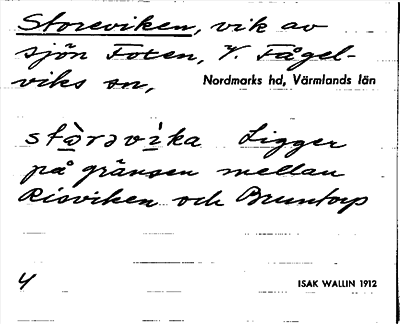 Storeviken, vik av
sjön Foten, V. Fågel-
viks sn, Nordmarks hd, Värmlands län
stòrəvìka Ligger
på gränsen mellan
Risviken och Bruntorp
4
ISAK WALLIN 1912